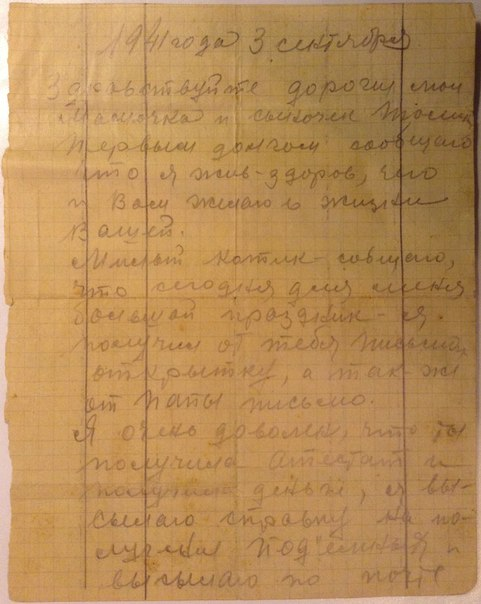 1941 года 3 сентября
Здравствуйте дорогии мои
Мамочка и сыночек Толик
Первым долгом сообщаю
что я жив-здоров, чего
и Вам желаю в жизни
Вашей.
Милый котик - совщаю,
что сегодня для меня
большой праздник - я.
получил от тебя письмо,
открытку, а так-же
от папы письмо.
Я очень доволен, что ты
получила аттестат и
деньги, я вы-
сылаю справку на по-
лучения подъёмных и
высылаю по почте